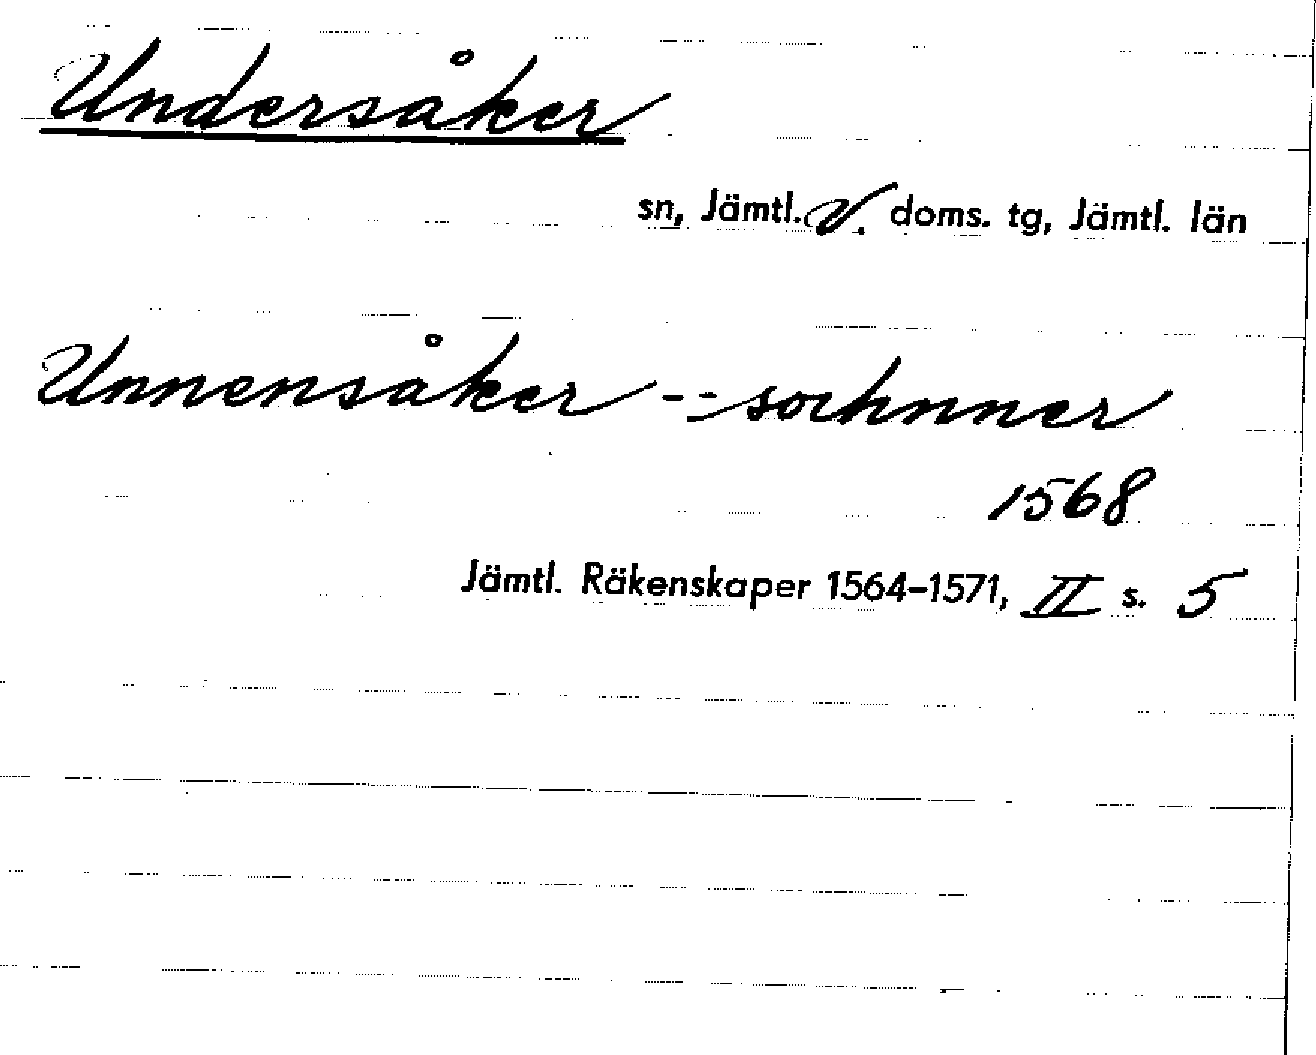 Undersåker
sn, Jämtl. V. doms. tg, Jämtl. län
Unnensåker -- sochnner
1568
Jämtl. Räkenskaper 1564-1571, II s. 5